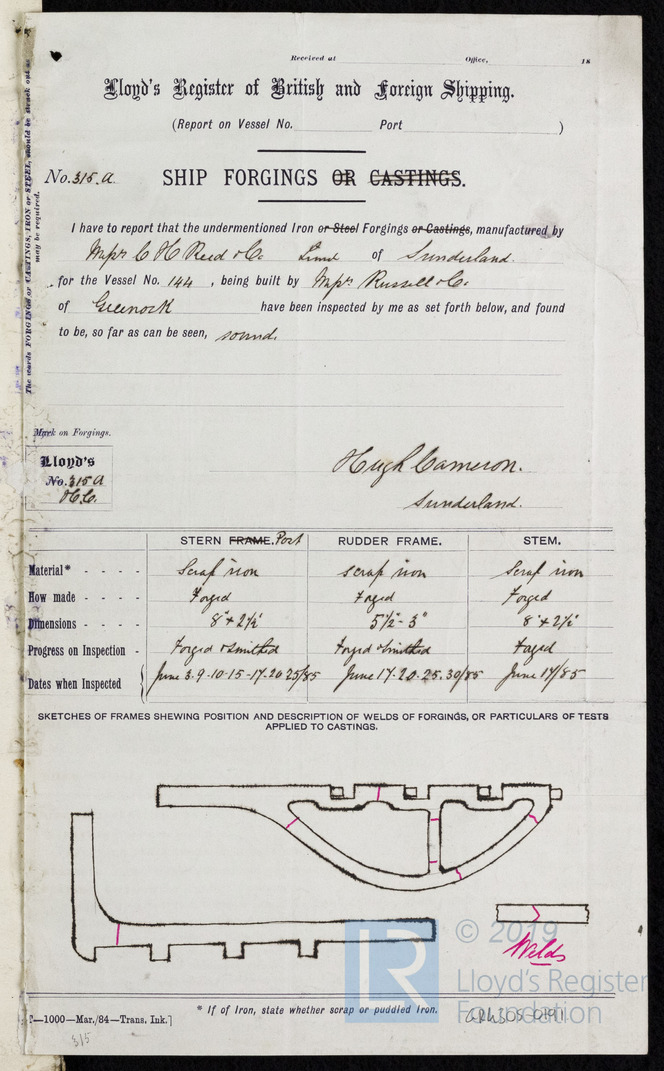 Received at Office, 18
Lloyd's Register of British and Foreign Shipping.
(Report on Vessel No. Port )
No. 315.A. SHIP FORGINGS OR CASTINGS.
I have to report that the undermentioned Iron or Steel Forgings or Castings, manufactured by
Messrs C H Reed & Co. Limd of Sunderland
for the Vessel No. 144, being built by Messrs Russell & Co.
of Greenock have been inspected by me as set forth below, and found
to be, so far as can be seen, sound.
The words FORGINGS or CASTINGS, IRON or STEEL, should be struck out as
may be required.
Mark on Forgings.
Lloyd's
No. 315 A
H.C.
Hugh Cameron.
Sunderland.
STERN FRAME. Post RUDDER FRAME. STEM.
Material* - - - - Scrap iron Scrap iron Scrap iron
How made - - - - Forged Forged Forged
Dimensions - - - - 8" x 2½" 5½" - 3" 8" x 2½"
Progress on Inspection - Forged & Smithed Forged & Smithed Forged
Dates when Inspected June 3.9.10-15-17.20 25/85 June 17-20.25.30/85 June 17/85
SKETCHES OF FRAMES SHEWING POSITION AND DESCRIPTION OF WELDS OF FORGINGS, OR PARTICULARS OF TESTS
APPLIED TO CASTINGS.
Welds
© 2019
LR
Lloyd's Register
Foundation
* If of Iron, state whether scrap or puddled Iron.
—1000—Mar./84—Trans. Ink.]
315